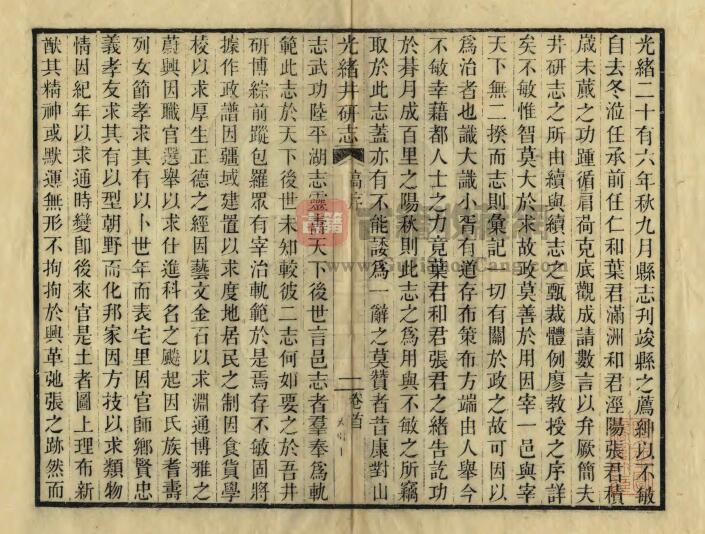 光緒二十有六年秋九月縣志刊竣縣之薦紳以不敏
自去冬涖任承前任仁和葉君滿洲和君涇陽張君積
歲未蕆之功踵循肩荷克底觀成請數言以弁厥簡夫
井研志之所由續與續志之甄裁體例廖教授之序詳
矣不敏惟智莫大於來故政莫善於用因宰一邑與宰
天下無二揆而志則彙記一切有關於政之故可因以
為治者也識大識小胥有道存布策布方端由人舉今
不敏幸藉都人士之力竟葉君和君張君之緒告訖功
於朞月成百里之陽秋則此志之為用與不敏之所竊
取於此志蓋亦有不能諉為一辭之莫贊者昔康對山
光緒井研志
序
二
卷首
志武功陸平湖志靈壽天下後世言邑志者羣奉為軌
範此志於天下後世未知較彼二志何如要之於吾井
研博綜前蹤包羅眾有宰治軌範於是焉存不敏固將
據作政譜因疆域建置以求度地居民之制因食貨學
校以求厚生正德之經因藝文金石以求淵通博雅之
蔚興因職官選舉以求仕進科名之飈起因氏族耆壽
列女節孝求其有以卜世年而表宅里因官師鄉賢忠
義孝友求其有以型朝野而化邦家因方技以求類物
情因紀年以求通時變卽後來官是土者圖上理布新
猷其精神或默運無形不拘拘於興革弛張之跡然而
古籍
www.GuJiShouCang.com